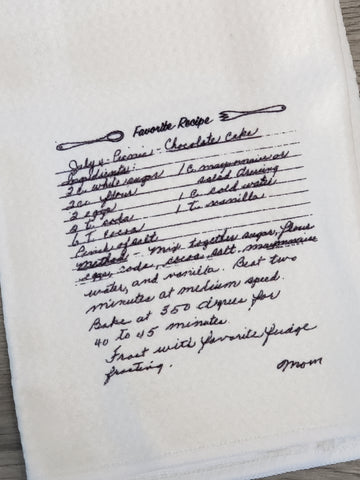 Favorite Recipe
July 4 Picnic - Chocolate Cake
Ingredients:
2 c. white sugar 1 c. mayonnaise or
2 c. flour salad dressing
2 eggs 1 c. cold water
2 t. soda 1 T. vanilla
6 T. cocoa
Pinch of salt
Method - Mix together sugar, flour
eggs, soda, cocoa, salt, mayonnaise
water, and vanilla. Beat two
minutes at medium speed.
Bake at 350 degrees for
40 to 45 minutes.
Frost with favorite fudge
frosting.
Mom